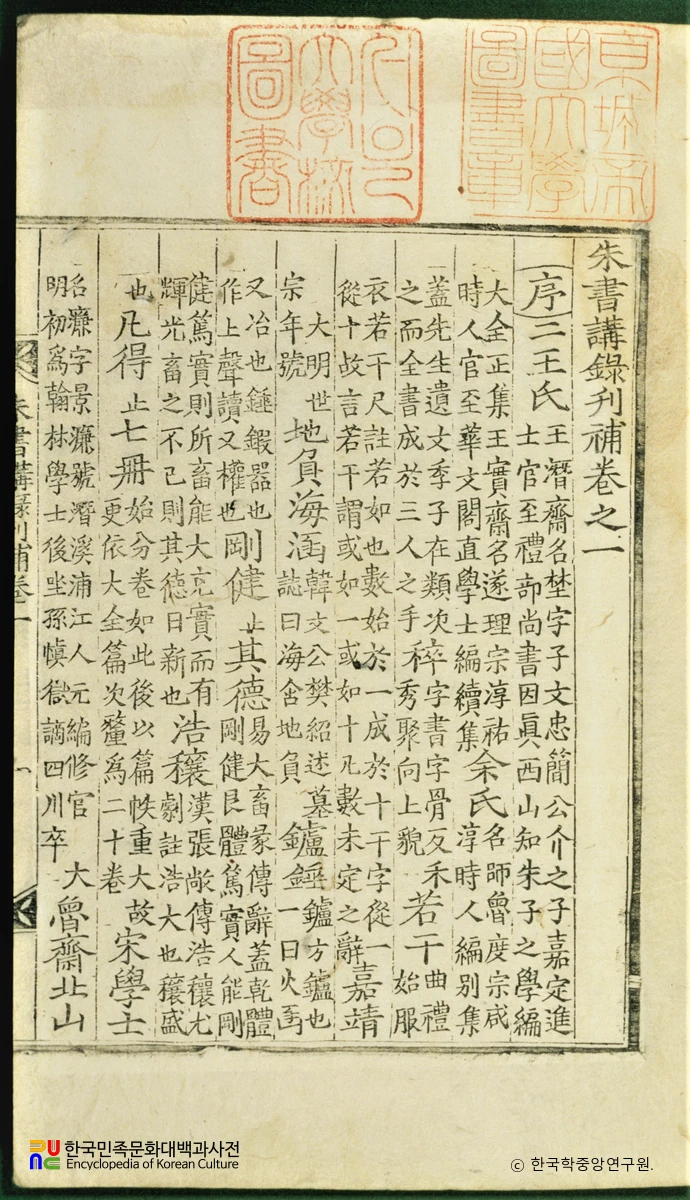 京城帝
國大學
圖書章
大學校
圖書
朱書講錄刊補卷之一
序 二王氏 王潛齋名埜字子文忠簡公介之子嘉定進
士官至禮部尚書因眞西山知朱子之學編
大全正集王實齋名遂理宗淳祐
時人官至華文閣直學士編續集 余氏 名師魯度宗咸
淳時人編別集
蓋先生遺文季子在類次
之而全書成於三人之手 稡 字書字骨反禾
秀聚向上貌 若干 曲禮
始服
衣若干尺註若如也數始於一成於十干字從一
從十故言若干謂或如一或如十凡數未定之辭 嘉靖
大明世
宗年號 地負海涵 韓文公樊紹述墓
誌曰海含地負 鑪錘 鑪方鑪也
一曰火函
又冶也錘鍜器也
作上聲讀又權也 剛健止其德 易大畜彖傳辭蓋乾體
剛健艮體篤實人能剛
健篤實則所畜能大充實而有
輝光畜之不已則其德日新也 浩穰 漢張敞傳浩穰尤
劇註浩大也穰盛
也 凡得止七冊 始分卷如此後以篇帙重大故
更依大全篇次釐爲二十卷 宋學士
名濂字景濂號潛溪浦江人元編修官
明初爲翰林學士後坐孫愼獄謫四川卒 大 魯齋北山
朱書講錄刊補卷一
한국민족문화대백과사전
Encyclopedia of Korean Culture
ⓒ 한국학중앙연구원.